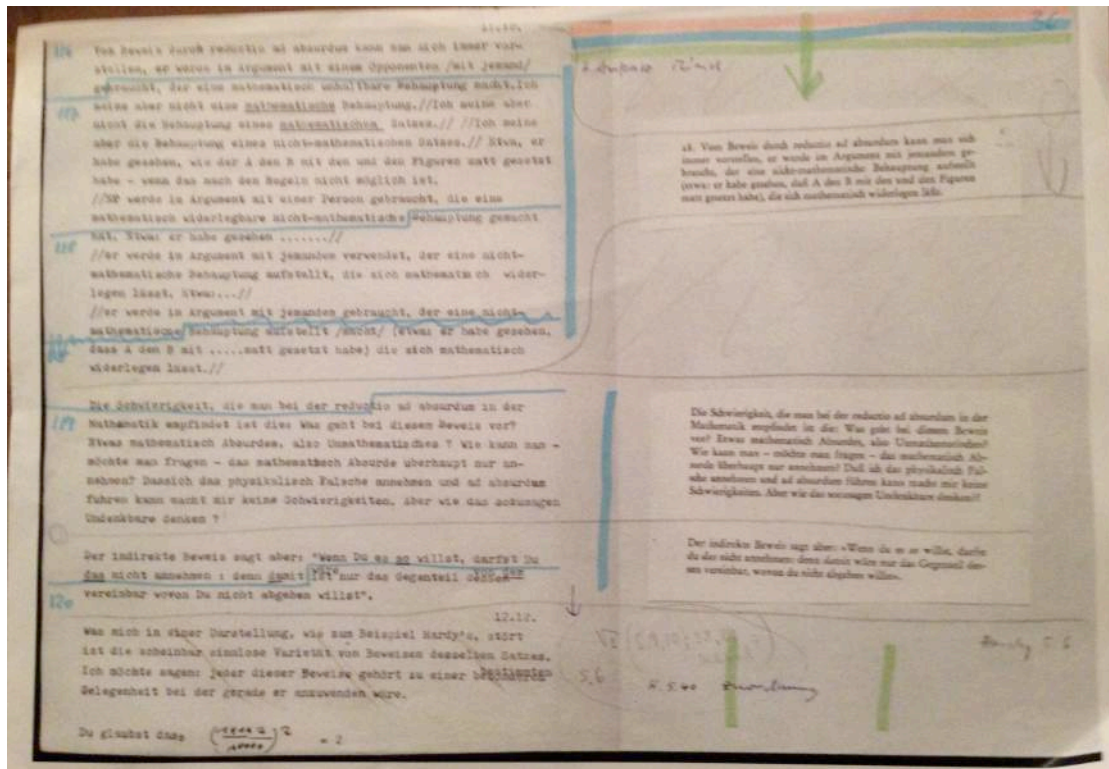 36
116
Vom Beweis durch reductio ad absurdum kann man sich immer vor-
stellen, er werde im Argument mit einem Opponenten /mit jemand/
gebraucht, der eine mathematisch unhaltbare Behauptung macht. Ich
117
meine aber nicht eine mathematische Behauptung.//Ich meine aber
nicht die Behauptung eines mathematischen Satzes.// //Ich meine
aber die Behauptung eines nicht-mathematischen Satzes.// Etwa, er
habe gesehen, wie der A den B mit den und den Figuren matt gesetzt
habe - wenn das nach den Regeln nicht möglich ist.
//Er werde im Argument mit einer Person gebraucht, die eine
mathematisch widerlegbare nicht-mathematische Behauptung gemacht
hat. Etwa: er habe gesehen .......//
118
//er werde im Argument mit jemanden verwendet, der eine nicht-
mathematische Behauptung aufstellt, die sich mathematisch wider-
legen lässt. Etwa:...//
//er werde im Argument mit jemanden gebraucht, der eine nicht-
mathematische Behauptung aufstellt /macht/ (etwa: er habe gesehen,
dass A den B mit .....matt gesetzt habe) die sich mathematisch
widerlegen lässt.//
Die Schwierigkeit, die man bei der reductio ad absurdum in der
119
Mathematik empfindet ist die: Was geht bei diesem Beweis vor?
Etwas mathematisch Absurdes, also Unmathematisches ? Wie kann man -
möchte man fragen - das mathematisch Absurde überhaupt nur an-
nehmen? Dassich das physikalisch Falsche annehmen und ad absurdum
führen kann macht mir keine Schwierigkeiten. Aber wie das sozusagen
Undenkbare denken ?
Der indirekte Beweis sagt aber: "Wenn Du es so willst, darfst Du
das nicht annehmen : denn damit ist nur das Gegenteil dessen
120
vereinbar wovon Du nicht abgehen willst".
12.12.
Was mich in einer Darstellung, wie zum Beispiel Hardy's, stört
ist die scheinbar sinnlose Varietät von Beweisen desselben Satzes.
Ich möchte sagen: jeder dieser Beweise gehört zu einer bestimmten
Gelegenheit bei der gerade er anzuwenden wäre.
Du glaubst dass = 2
28. Vom Beweis durch reductio ad absurdum kann man sich
immer vorstellen, er werde im Argument mit jemandem ge-
braucht, der eine nicht-mathematische Behauptung aufstellt
(etwa: er habe gesehen, daß A den B mit den und den Figuren
matt gesetzt habe), die sich mathematisch widerlegen läßt.
Die Schwierigkeit, die man bei der reductio ad absurdum in der
Mathematik empfindet ist die: Was geht bei diesem Beweis
vor? Etwas mathematisch Absurdes, also Unmathematisches?
Wie kann man – möchte man fragen – das mathematisch Ab-
surde überhaupt nur annehmen? Daß ich das physikalisch Fal-
sche annehmen und ad absurdum führen kann macht mir keine
Schwierigkeiten. Aber wie das sozusagen Undenkbare denken?!
Der indirekte Beweis sagt aber: »Wenn du es so willst, darfst
du das nicht annehmen: denn damit wäre nur das Gegenteil des-
sen vereinbar, wovon du nicht abgehen willst«.